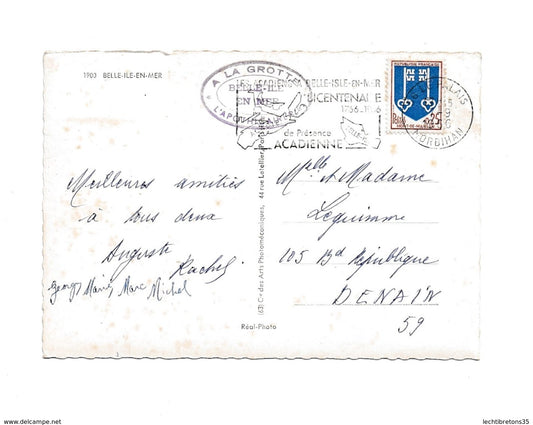 1900 BELLE-ILE-EN-MER
A LA GROTTE
BELLE-ILE
EN MER
LES ACADIENS A BELLE-ISLE-EN-MER
BICENTENAIRE
de Présence
ACADIENNE
REPUBLIQUE FRANÇAISE
0,25
MONT-DE-MARSAN
LE PALAIS
MORBIHAN
Meilleures amitiés
à tous deux
Auguste
Rachel
Georges Marie Marc Michel
(63) Cie des Arts Photomécaniques, 44 rue Letellier, Paris
Réal-Photo
et Madame
Lequimme
105 Bd République
DENAIN
59
www.delcampe.net
lechtibretons35